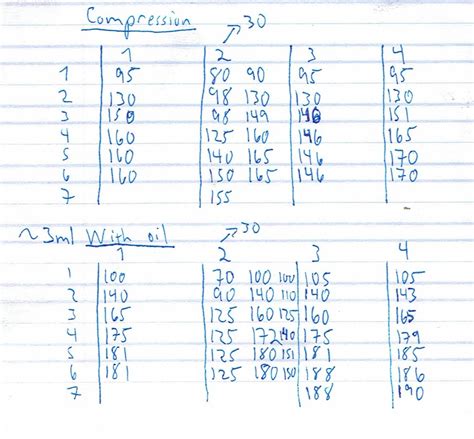 Compression
→30
1 2 3 4
1 95 80 90 95 95
2 130 98 130 130 130
3 150 98 149 146 151
4 160 125 160 146 165
5 160 140 165 146 170
6 160 150 165 146 170
7 155
~3ml With oil
→30
1 2 3 4
1 100 70 100 100 105 105
2 140 90 140 110 140 143
3 165 125 160 125 160 165
4 175 125 172 140 175 179
5 181 125 180 151 181 185
6 181 125 180 150 188 186
7 188 190